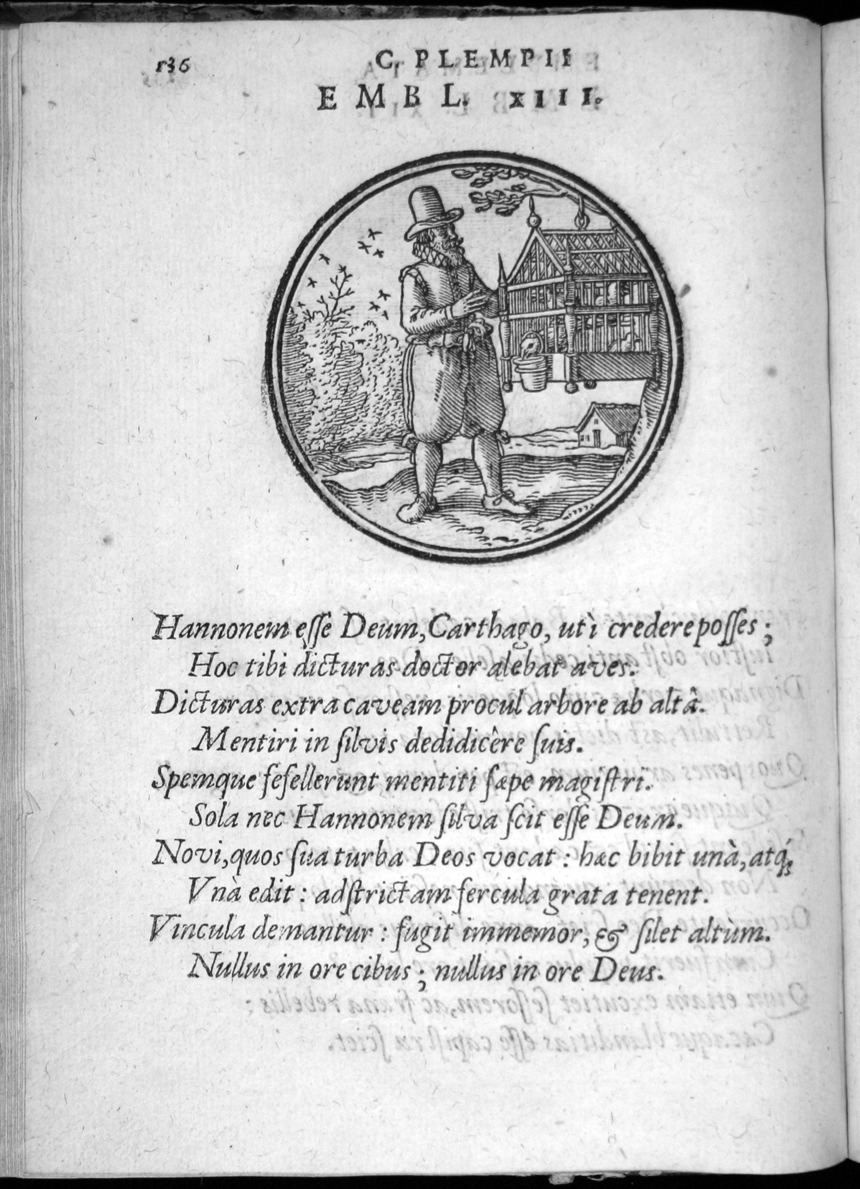 136
C. PLEMPII
EMBL. XIII.
Hannonem eſſe Deum, Carthago, utì credere poſſes;
Hoc tibi dicturas doctor alebat aves.
Dicturas extra caveam procul arbore ab altâ.
Mentiri in ſilvis dedidicêre ſuis.
Spemque fefellerunt mentiti ſæpe magiſtri.
Sola nec Hannonem ſilva ſcit eſſe Deum.
Novi, quos ſua turba Deos vocat: hæc bibit unà, atq́;
Vnà edit: adſtrictam fercula grata tenent.
Vincula demantur: fugit immemor, & ſilet altùm.
Nullus in ore cibus; nullus in ore Deus.